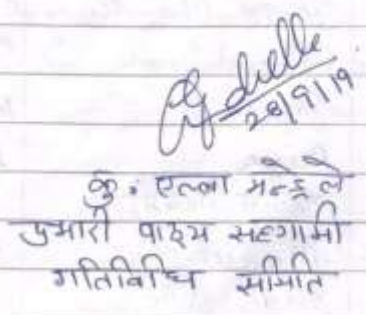 28/9/19
कु. एल्बा मन्ड्रेले
प्रभारी पाठ्य सहगामी
गतिविधि समिति